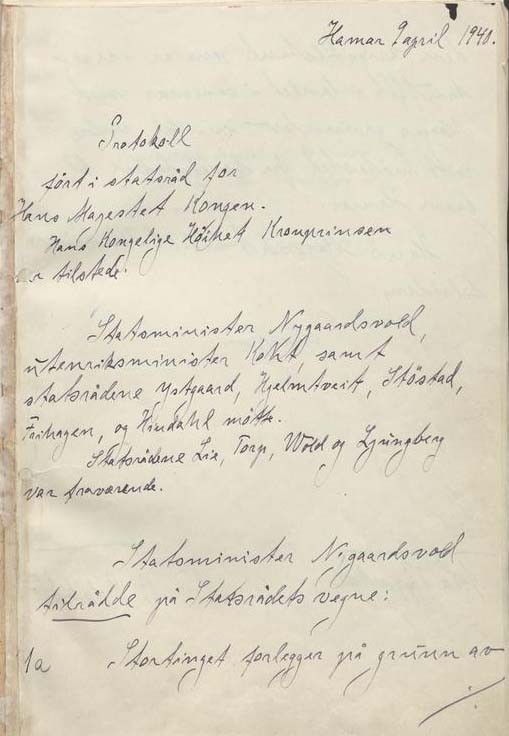 Hamar 9 april 1940.
Protokoll
ført i statsråd for
Hans Majestet Kongen.
Hans Kongelige Höihet Kronprinsen
var tilstede.
Statsminister Nygaardsvold,
utenriksminister Koht, samt
statsrådene Ystgaard, Hjelmtveit, Stöstad,
Frihagen, og Hindahl mötte.
Statsrådene Lie, Torp, Wold og Ljungberg
var fraværende.
Statsminister Nygaardsvold
tilrådde på Statsrådets vegne:
1a Stortinget forlegger på grunn av